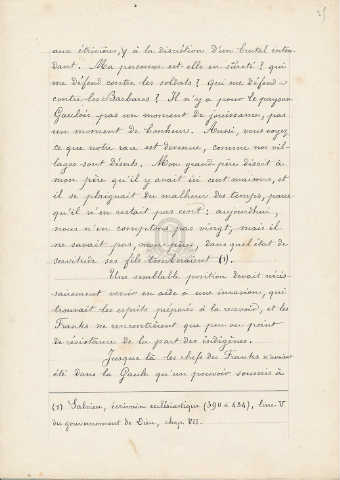 25
aux étrivières, à la discrétion d'un brutal inten-
dant. Ma personne est elle en sûreté ? qui
me défend contre les soldats ? qui me défend
contre les Barbares ? Il n'y a pour le paysan
Gaulois pas un moment de jouissance, pas
un moment de bonheur. Aussi, vous voyez
ce que notre race est devenue, comme nos vil-
lages sont déserts. Mon grand père disait à
mon père qu'il y avait ici cent maisons, et
il se plaignait du malheur des temps, parce
qu'il n'en restait pas cent : aujourd'hui,
nous n'en comptons pas vingt, mais il
ne savait pas, mon père, dans quel état de
servitude ses fils tomberaient (1).
Une semblable position devait néces-
sairement venir en aide à une invasion, qui
trouvait les esprits préparés à la recevoir, et les
Franks ne rencontrèrent que peu ou point
de résistance de la part des indigènes.
Jusque là les chefs des Franks n'avaient
été dans la Gaule qu'un pouvoir soumis à
(1) Salvien, écrivain ecclésiastique (390 à 484), livre V
du gouvernement de Dieu, chap. VII.